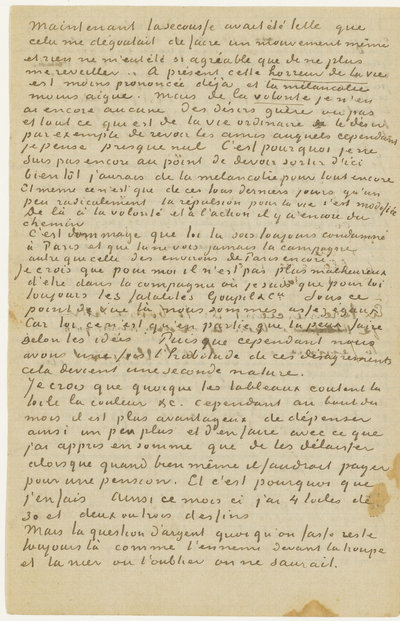 Maintenant la secousse avait été telle que
cela me dégoutait de faire un mouvement même
et rien ne m'eut été si agréable que de ne plus
me reveiller. . A présent cette horreur de la vie
est moins prononcée déjà et la mélancolie
moins aigue. Mais de la volonté je n'en
ai encore aucune des désirs guère ou pas
et tout ce qui est de la vie ordinaire le désir
par exemple de revoir les amis auxquels cependant
je pense presque nul C'est pourquoi je ne
suis pas encore au point de devoir sortir d'ici
bientôt j'aurais de la mélancolie pour tout encore
Et meme ce n'est que de ces tous derniers jours qu'un
peu radicalement la répulsion pour la vie s'est modifiée
De là à la volonté et à l'action il y a encore du
chemin.
C'est dommage que toi tu sois toujours condamné
à Paris et que tu ne vois jamais la campagne
autre que celle des environs de Paris encore.
Je crois que pour moi il n'est pas plus malheureux
d'être dans la campagne où je suis que pour toi
toujours les fatalités Goupil & Cie Sous ce
point de vue là nous sommes assez égaux
Car toi ce n'est qu'en partie que tu peux faire
selon tes idées Puisque cependant nous
avons une fois l'habitude de ces désagréments
cela devient une seconde nature.
Je crois que quoique les tableaux coutent la
toile la couleur &c. cependant au bout du
mois il est plus avantageux de dépenser
ainsi un peu plus et d'en faire avec ce que
j'ai appris en somme que de les délaisser
alorsque quand bien même il faudrait payer
pour une pension. Et c'est pourquoi que
j'en fais Ainsi ce mois ci j'ai 4 toiles de
30 et deux ou trois dessins
Mais la question d'argent quoi qu'on fasse reste
toujours là comme l'ennemi devant la troupe
et la nier ou l'oublier on ne saurait.